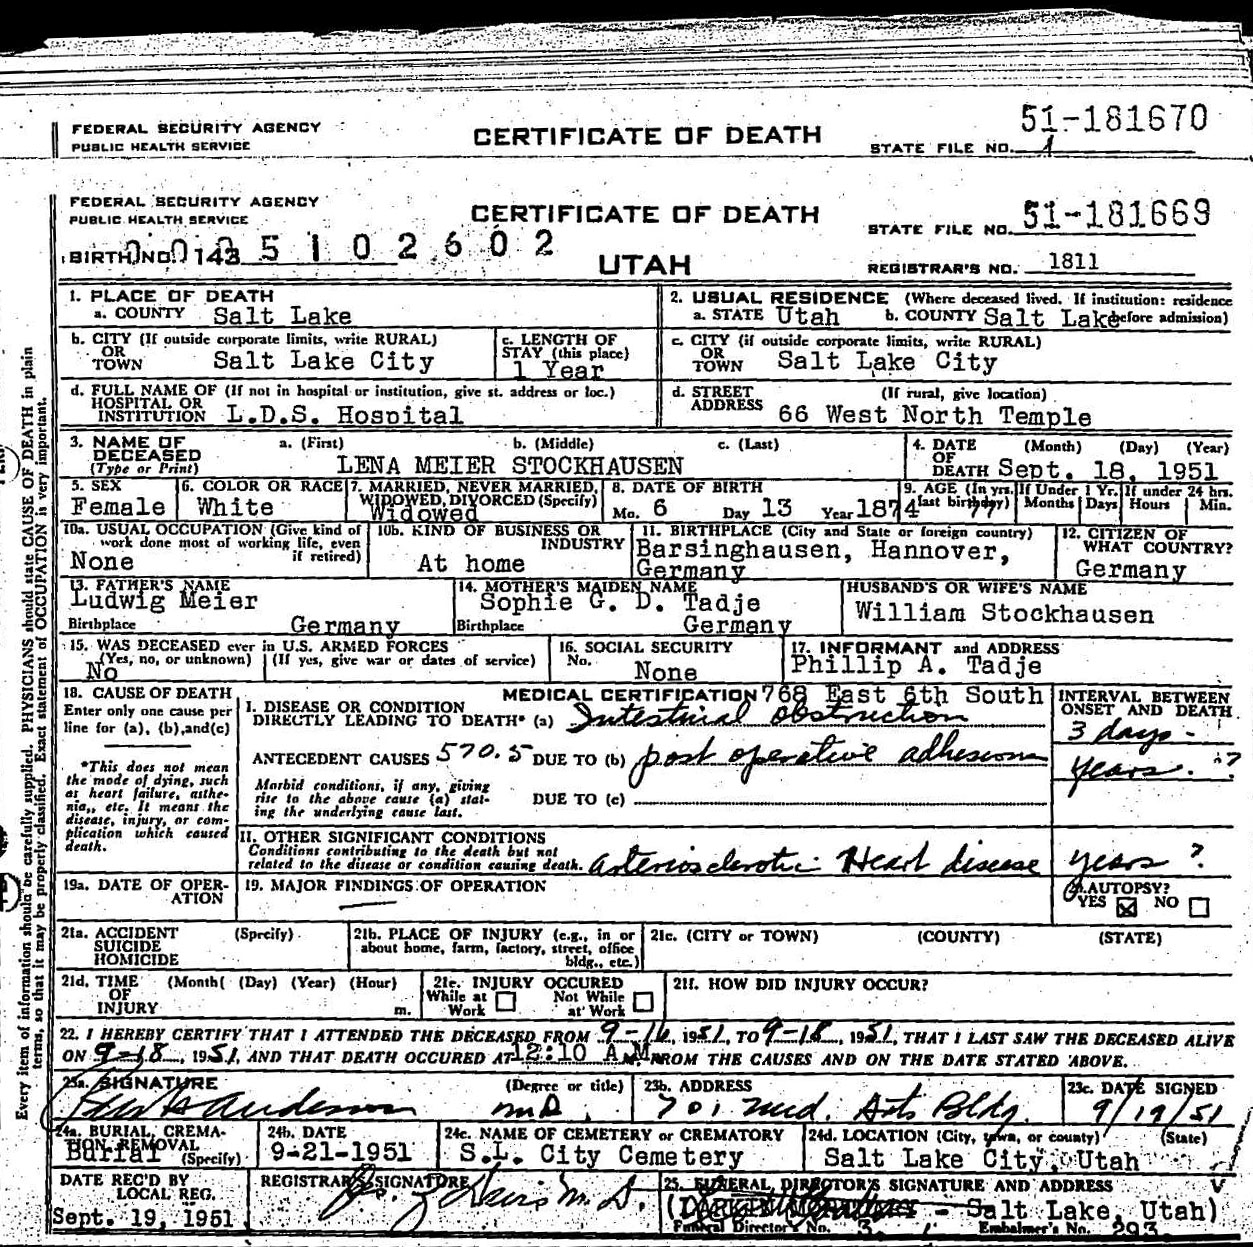 FEDERAL SECURITY AGENCY
PUBLIC HEALTH SERVICE
CERTIFICATE OF DEATH
51-181670
STATE FILE NO. 1
FEDERAL SECURITY AGENCY
PUBLIC HEALTH SERVICE
CERTIFICATE OF DEATH
51-181669
STATE FILE NO.
BIRTH NO. 143 5 1 0 2 6 0 2
UTAH
REGISTRAR'S NO. 1811
1. PLACE OF DEATH
a. COUNTY Salt Lake
2. USUAL RESIDENCE (Where deceased lived. If institution: residence before admission)
a. STATE Utah b. COUNTY Salt Lake
b. CITY (If outside corporate limits, write RURAL)
OR
TOWN Salt Lake City
c. LENGTH OF
STAY (this place)
1 Year
c. CITY (if outside corporate limits, write RURAL)
OR
TOWN Salt Lake City
d. FULL NAME OF (If not in hospital or institution, give st. address or loc.)
HOSPITAL OR
INSTITUTION L.D.S. Hospital
d. STREET (If rural, give location)
ADDRESS 66 West North Temple
3. NAME OF a. (First) b. (Middle) c. (Last)
DECEASED
(Type or Print) LENA MEIER STOCKHAUSEN
4. DATE (Month) (Day) (Year)
OF
DEATH Sept. 18, 1951
5. SEX
Female
6. COLOR OR RACE
White
7. MARRIED, NEVER MARRIED,
WIDOWED, DIVORCED (Specify)
Widowed
8. DATE OF BIRTH
Mo. 6 Day 13 Year 1874
9. AGE (In yrs. last birthday) 77
If Under 1 Yr. Months Days
If under 24 hrs. Hours Min.
10a. USUAL OCCUPATION (Give kind of
work done most of working life, even
if retired)
None
10b. KIND OF BUSINESS OR
INDUSTRY
At home
11. BIRTHPLACE (City and State or foreign country)
Barsinghausen, Hannover,
Germany
12. CITIZEN OF
WHAT COUNTRY?
Germany
13. FATHER'S NAME
Ludwig Meier
Birthplace Germany
14. MOTHER'S MAIDEN NAME
Sophie G. D. Tadje
Birthplace Germany
HUSBAND'S OR WIFE'S NAME
William Stockhausen
15. WAS DECEASED ever in U.S. ARMED FORCES
(Yes, no, or unknown) (If yes, give war or dates of service)
No
16. SOCIAL SECURITY
No. None
17. INFORMANT and ADDRESS
Phillip A. Tadje
768 East 6th South
18. CAUSE OF DEATH
Enter only one cause per
line for (a), (b), and (c)
*This does not mean
the mode of dying, such
as heart failure, asthe-
nia,, etc. It means the
disease, injury, or com-
plication which caused
death.
MEDICAL CERTIFICATION
I. DISEASE OR CONDITION
DIRECTLY LEADING TO DEATH* (a) Intestinal obstruction
ANTECEDENT CAUSES 570.5 DUE TO (b) post operative adhesions
Morbid conditions, if any, giving
rise to the above cause (a) stat-
ing the underlying cause last.
DUE TO (c)
II. OTHER SIGNIFICANT CONDITIONS
Conditions contributing to the death but not
related to the disease or condition causing death. Arteriosclerotic Heart disease
INTERVAL BETWEEN
ONSET AND DEATH
3 days -
years. ?
years ?
19a. DATE OF OPER-
ATION
19. MAJOR FINDINGS OF OPERATION
AUTOPSY?
YES ☒ NO ☐
21a. ACCIDENT (Specify)
SUICIDE
HOMICIDE
21b. PLACE OF INJURY (e.g., in or
about home, farm, factory, street, office
bldg., etc.)
21c. (CITY or TOWN) (COUNTY) (STATE)
21d. TIME (Month( (Day) (Year) (Hour)
OF
INJURY m.
21e. INJURY OCCURED
While at Work ☐ Not While at Work ☐
21f. HOW DID INJURY OCCUR?
22. I HEREBY CERTIFY THAT I ATTENDED THE DECEASED FROM 9-16, 1951, TO 9-18, 1951, THAT I LAST SAW THE DECEASED ALIVE
ON 9-18, 1951, AND THAT DEATH OCCURED AT 12:10 A.M. FROM THE CAUSES AND ON THE DATE STATED ABOVE.
23a. SIGNATURE (Degree or title)
Anderson M.D.
23b. ADDRESS
701 Med. Arts Bldg.
23c. DATE SIGNED
9/19/51
24a. BURIAL, CREMA-
TION, REMOVAL
(Specify)
Burial
24b. DATE
9-21-1951
24c. NAME OF CEMETERY or CREMATORY
S.L. City Cemetery
24d. LOCATION (City, town, or county) (State)
Salt Lake City, Utah
DATE REC'D BY
LOCAL REG.
Sept. 19, 1951
REGISTRAR'S SIGNATURE
M.D.
25. FUNERAL DIRECTOR'S SIGNATURE AND ADDRESS
- Salt Lake, Utah)
Funeral Director's No. 3 Embalmer's No. 293
Every item of information should be carefully supplied. PHYSICIANS should state CAUSE OF DEATH in plain
terms, so that it may be properly classified. Exact statement of OCCUPATION is very important.